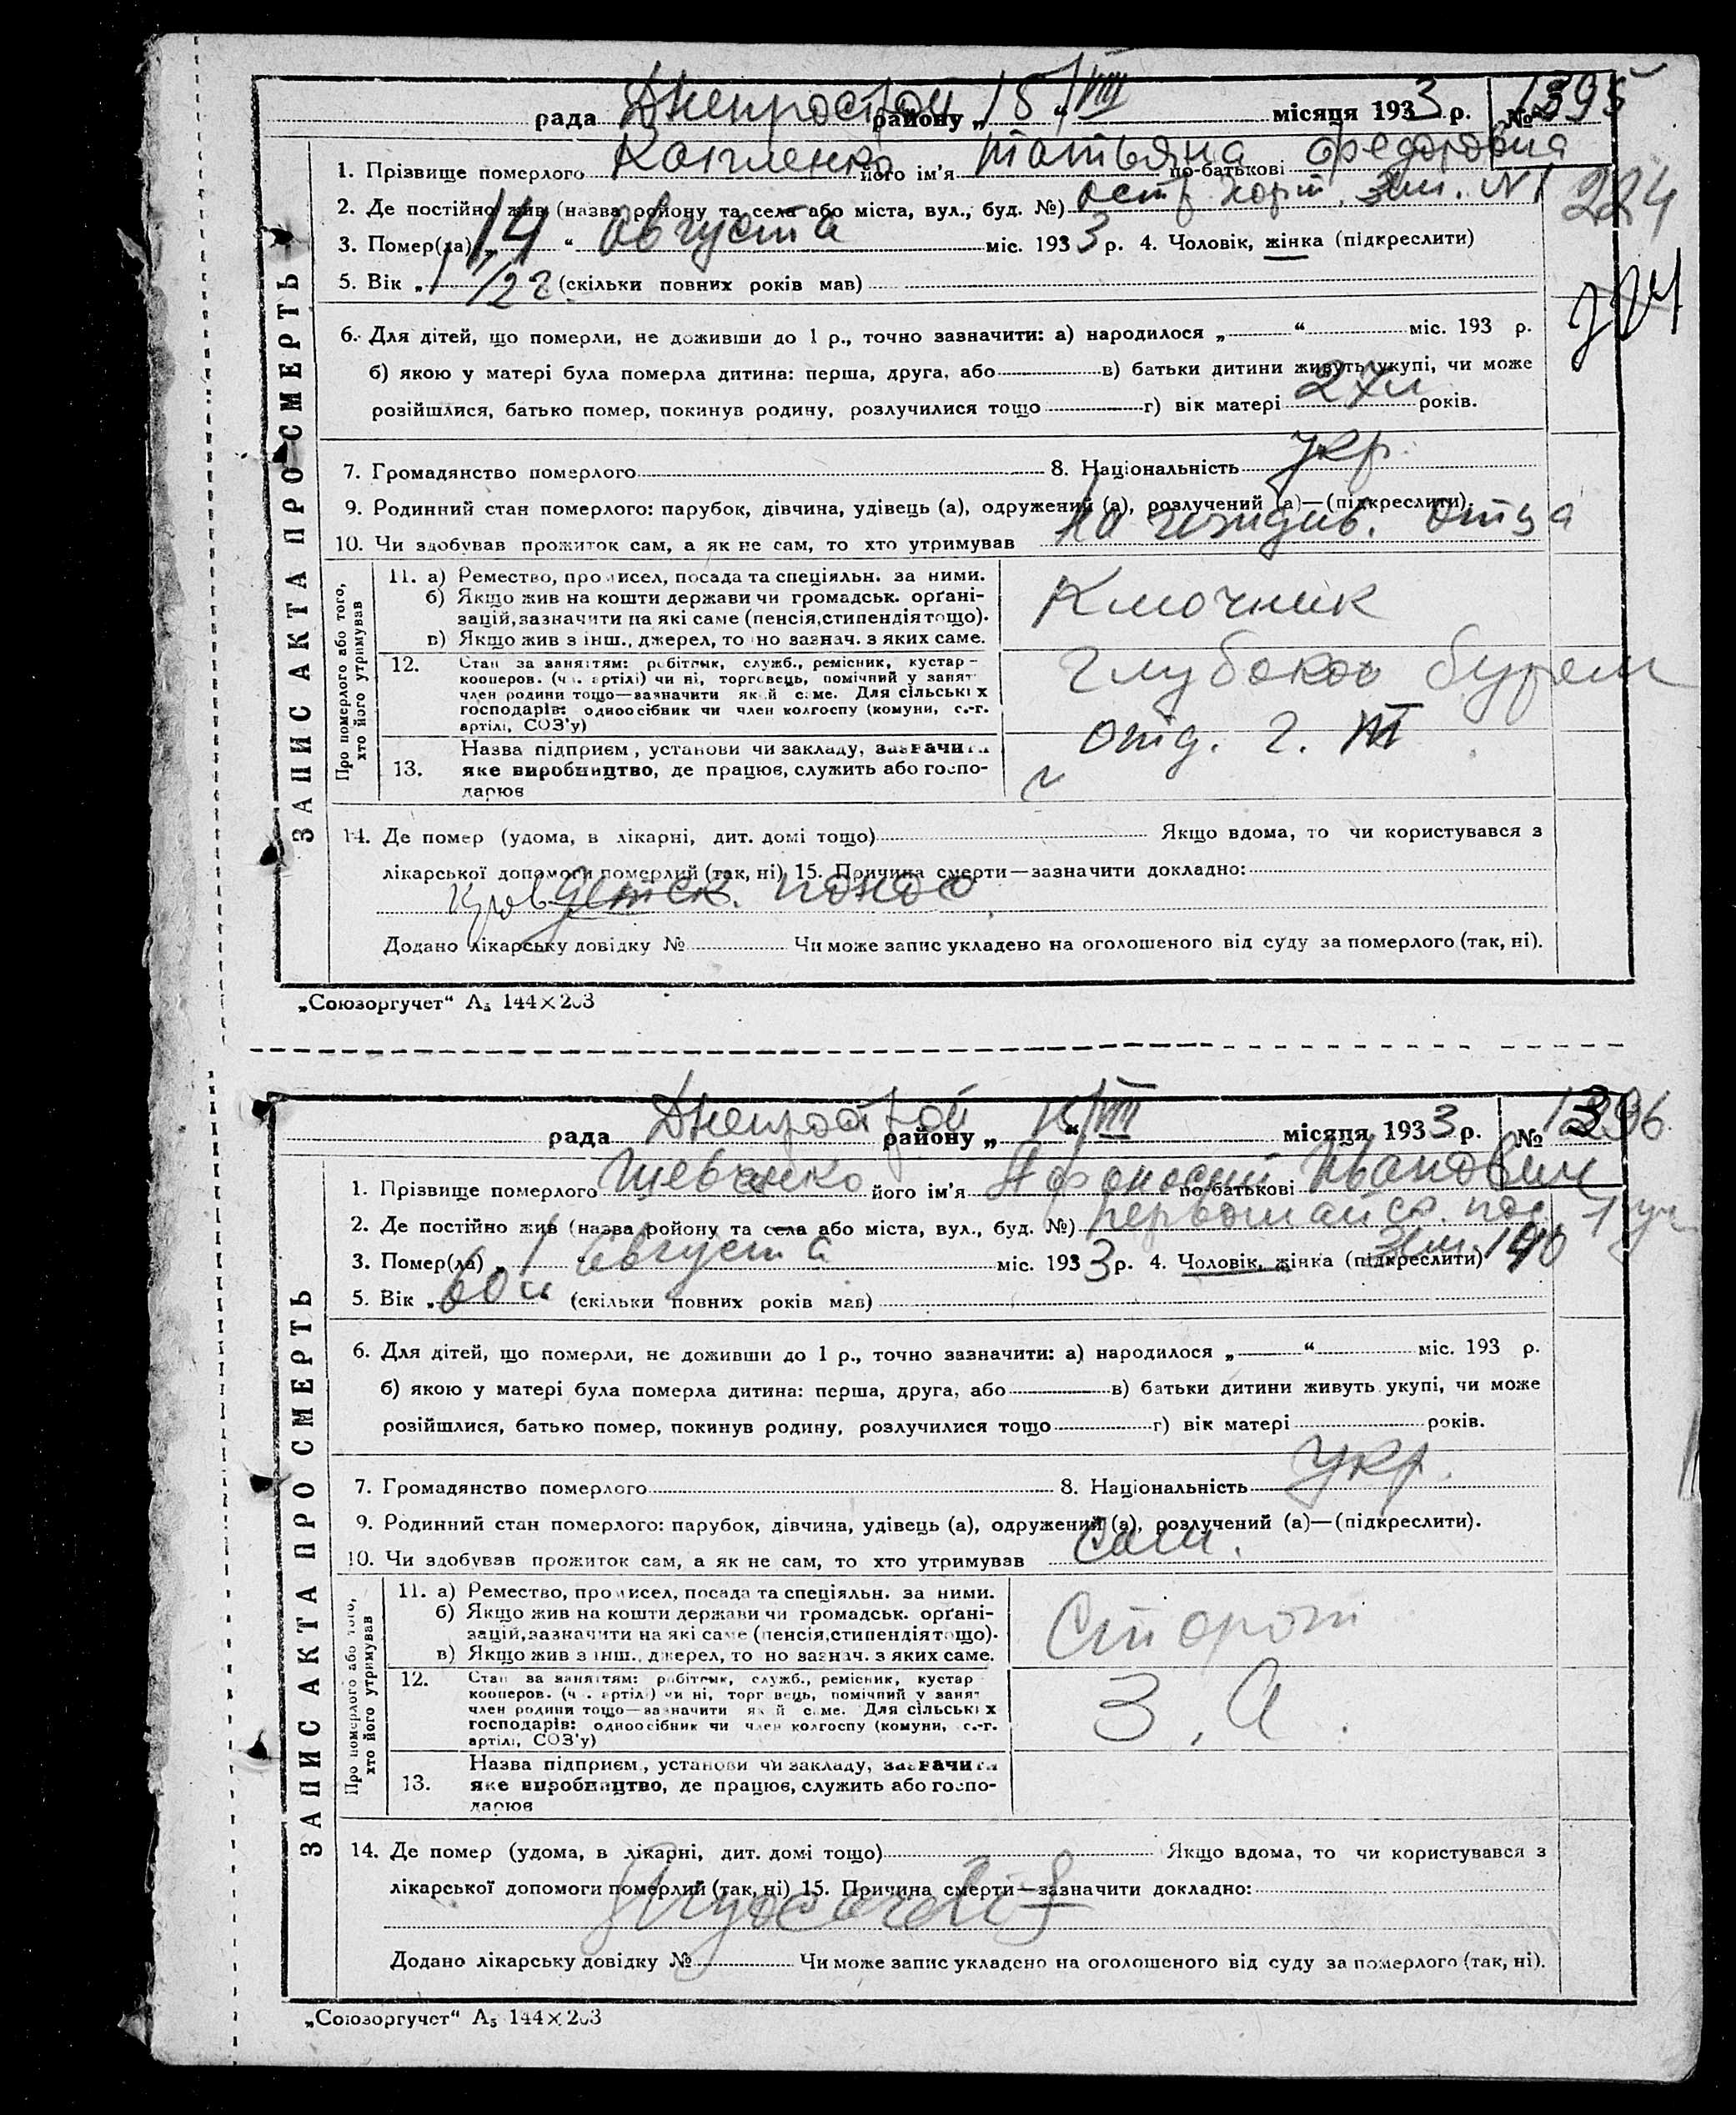 рада Днепрострой району „ 15 “ VIII місяця 1933 р. № 1395
1. Прізвище померлого його ім'я Татьяна по-батькові Федоровна
2. Де постійно жив (назва району та села або міста, вул., буд. №) остр. Хорт. зем. N 1
224
3. Помер(ла) „ 14 “ Августа міс. 1933 р. 4. Чоловік, жінка (підкреслити)
5. Вік „ 1 1/2 г (скільки повних років мав)
6. Для дітей, що померли, не доживши до 1 р., точно зазначити: а) народилося „ “ міс. 193 р.
б) якою у матері була померла дитина: перша, друга, або в) батьки дитини живуть укупі, чи може
розійшлися, батько помер, покинув родину, розлучилися тощо г) вік матері 27 л років.
7. Громадянство померлого 8. Національність укр.
9. Родинний стан померлого: парубок, дівчина, удівець (а), одружений (а), розлучений (а)—(підкреслити).
10. Чи здобував прожиток сам, а як не сам, то хто утримував На иждив. отца
ЗАПИС АКТА ПРО СМЕРТЬ
Про померлого або того, хто його утримував
11. а) Ремество, промисел, посада та спеціяльн. за ними.
б) Якщо жив на кошти держави чи громадськ. орґані-
зацій, зазначити на які саме (пенсія, стипендія тощо).
в) Якщо жив з інш., джерел, то но зазнач. з яких саме.
Ключник
12. Стан за заняттям: робітник, служб., ремісник, кустар-
кооперов. (чл. артілі) чи ні, торговець, помічний у занят
член родини тощо—зазначити який саме. Для сільських
господарів: одноосібник чи член колгоспу (комуни, с.-г.
артілі, СОЗ'у)
глубокого бурен
13. Назва підприєм., установи чи закладу, зазначити
яке виробництво, де працює, служить або госпо-
дарює
отд. г.
14. Де помер (удома, в лікарні, дит. домі тощо) Якщо вдома, то чи користувався з
лікарської допомоги померлий (так, ні) 15. Причина смерти—зазначити докладно:
кров детск. понос
Додано лікарську довідку № Чи може запис укладено на оголошеного від суду за померлого (так, ні).
„Союзоргучет“ А₅ 144×203
рада Днепрострой району „ 15 “ VIII місяця 1933 р. № 1396
1. Прізвище померлого Шевченко його ім'я Афонасий по-батькові Иванович
2. Де постійно жив (назва району та села або міста, вул., буд. №) первомайск. пос 1 уч
зем. 140
3. Помер(ла) „ 1 “ Августа міс. 1933 р. 4. Чоловік, жінка (підкреслити)
5. Вік „ 60 л (скільки повних років мав)
6. Для дітей, що померли, не доживши до 1 р., точно зазначити: а) народилося „ “ міс. 193 р.
б) якою у матері була померла дитина: перша, друга, або в) батьки дитини живуть укупі, чи може
розійшлися, батько помер, покинув родину, розлучилися тощо г) вік матері років.
7. Громадянство померлого 8. Національність укр.
9. Родинний стан померлого: парубок, дівчина, удівець (а), одружений (а), розлучений (а)—(підкреслити).
10. Чи здобував прожиток сам, а як не сам, то хто утримував Сам.
ЗАПИС АКТА ПРО СМЕРТЬ
Про померлого або того, хто його утримував
11. а) Ремество, промисел, посада та спеціяльн. за ними.
б) Якщо жив на кошти держави чи громадськ. орґані-
зацій, зазначити на які саме (пенсія, стипендія тощо).
в) Якщо жив з інш., джерел, то но зазнач. з яких саме.
Сторож
12. Стан за заняттям: робітник, служб., ремісник, кустар
кооперов. (чл. артілі) чи ні, торговець, помічний у занят
член родини тощо—зазначити який саме. Для сільських
господарів: одноосібник чи член колгоспу (комуни, с.-г.
артілі, СОЗ'у)
З. А.
13. Назва підприєм., установи чи закладу, зазначити
яке виробництво, де працює, служить або госпо-
дарює
14. Де помер (удома, в лікарні, дит. домі тощо) Якщо вдома, то чи користувався з
лікарської допомоги померлий (так, ні) 15. Причина смерти—зазначити докладно:
Myocardit
Додано лікарську довідку № Чи може запис укладено на оголошеного від суду за померлого (так, ні).
„Союзоргучет“ А₅ 144×203